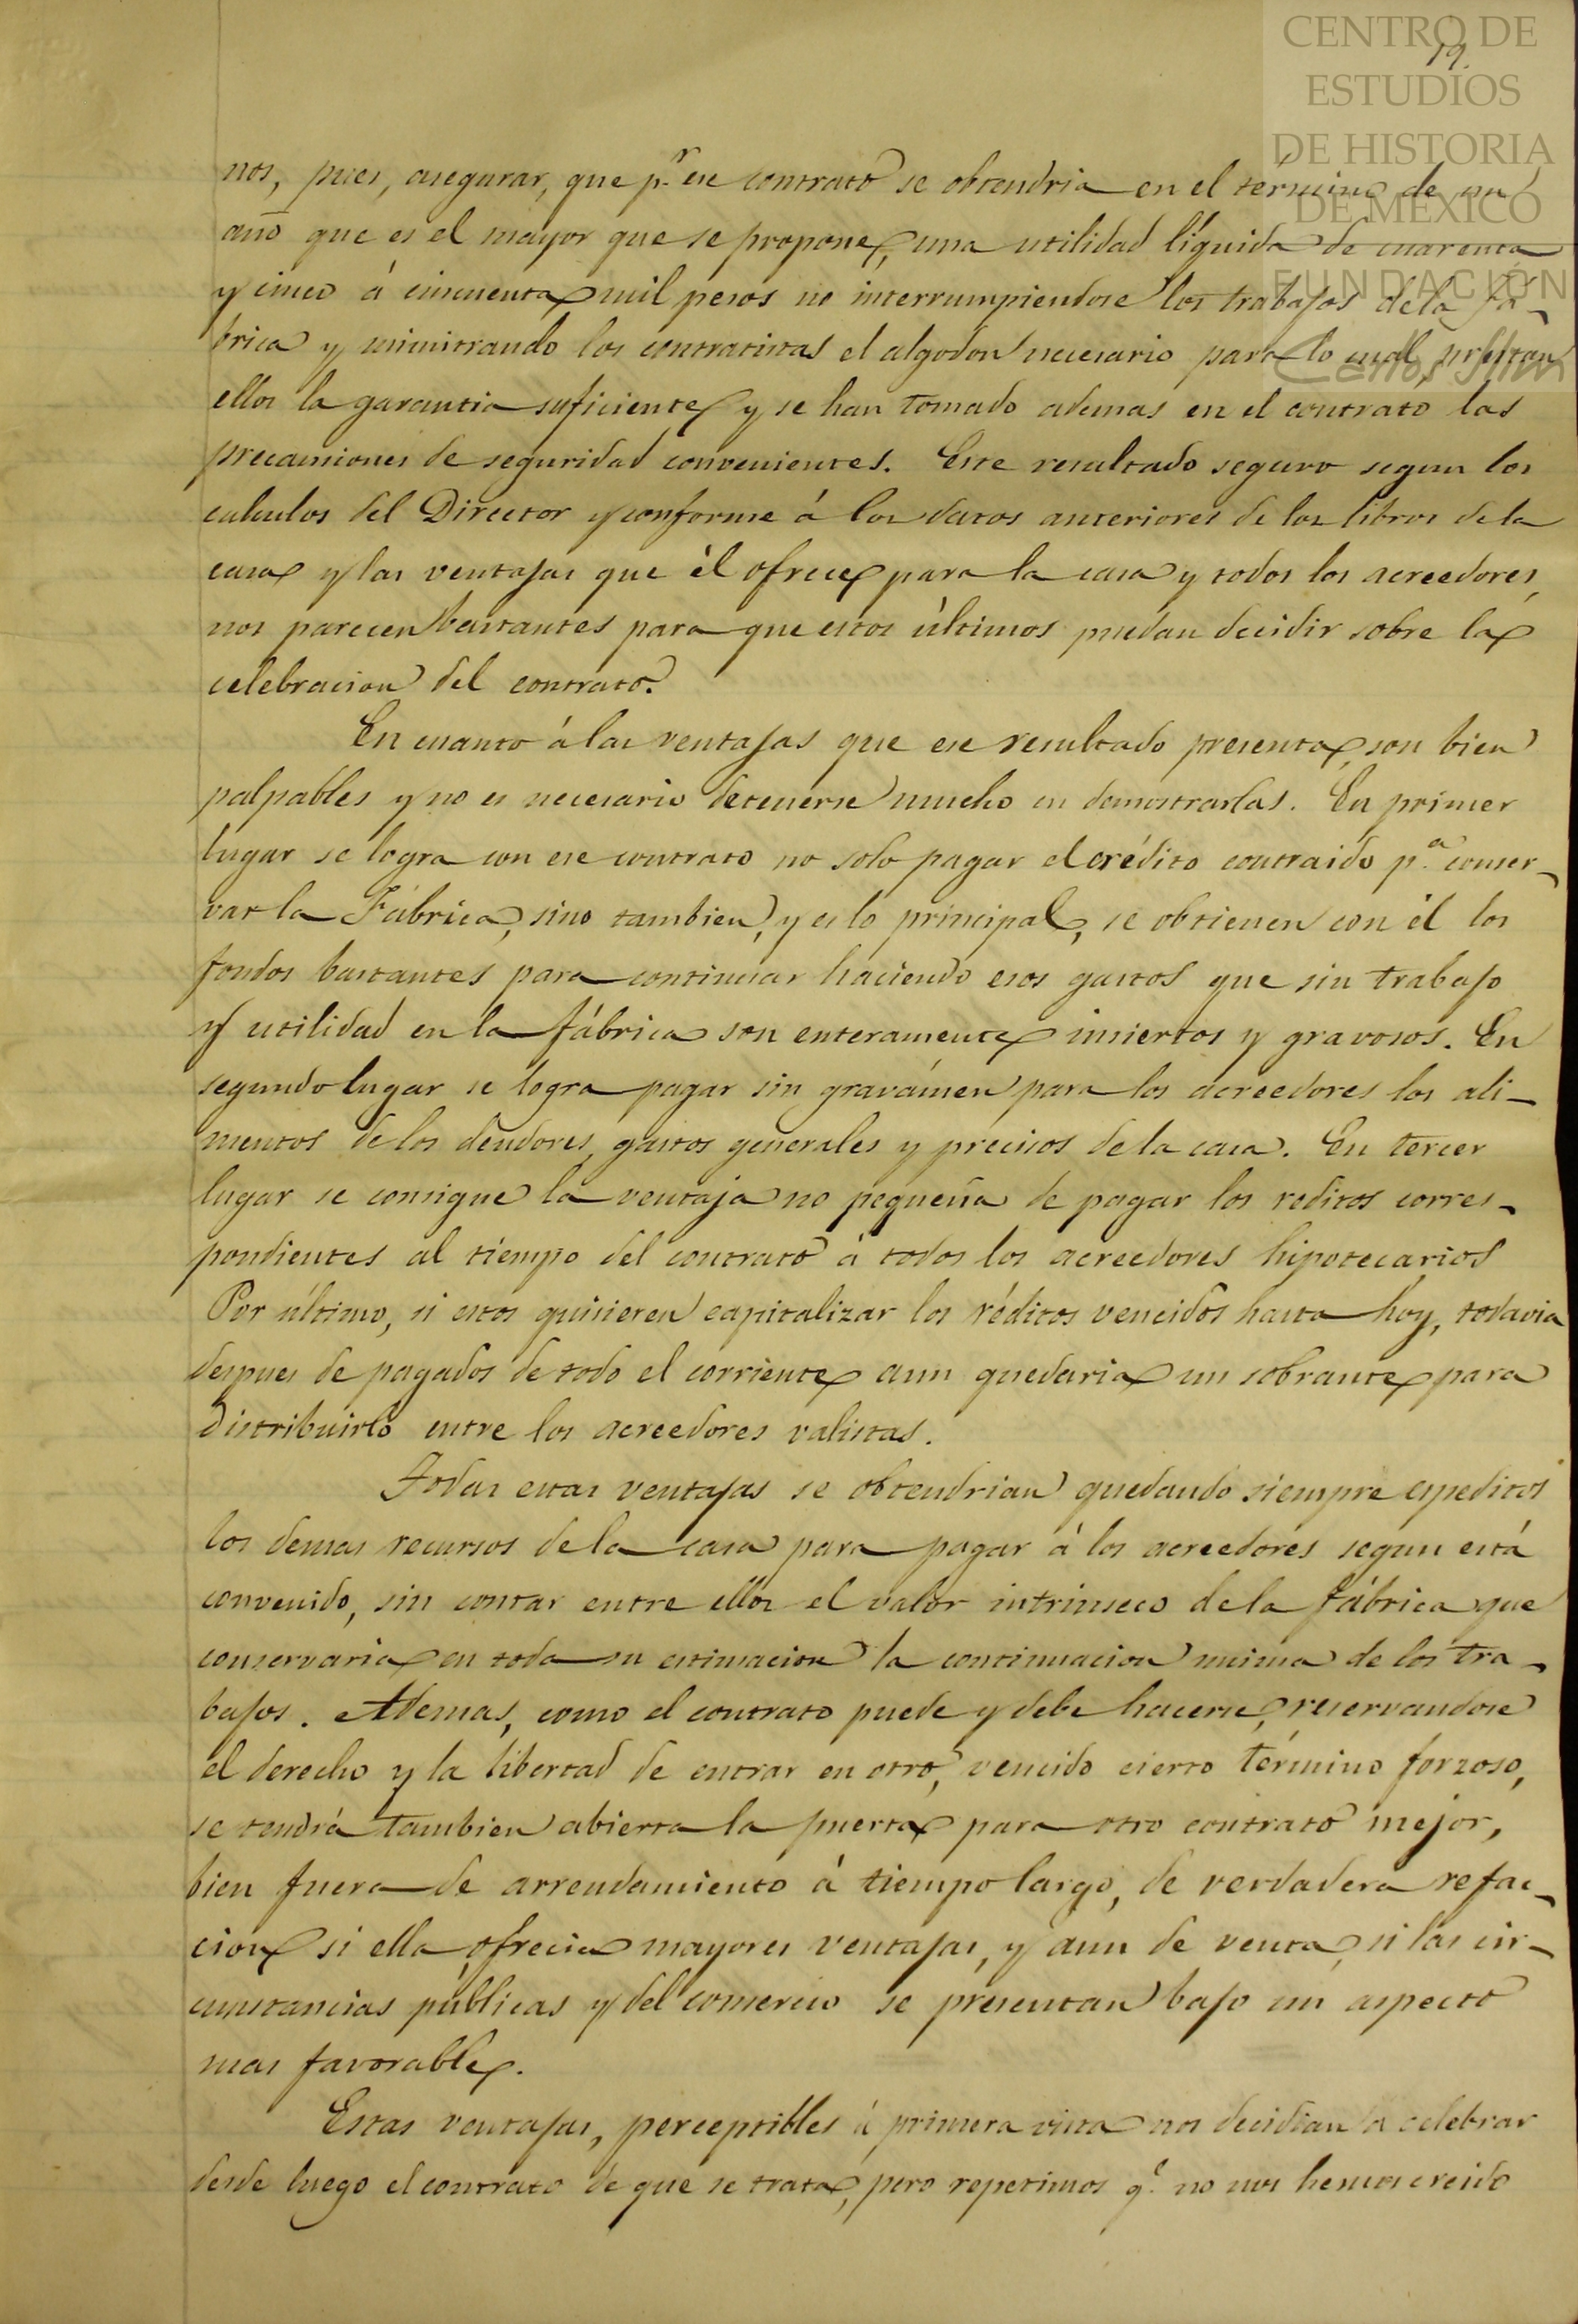 CENTRO DE
ESTUDIOS
DE HISTORIA
DE MÉXICO
FUNDACIÓN
Carlos Slim
19.
nos, pues, asegurar, que p.r ese contrato se obtendria en el término de un
año que es el mayor que se propone, una utilidad líquida de cuarenta
y cinco á cincuenta mil pesos no interrumpiendose los trabajos de la Fá-
brica y ministrando los contratistas el algodon necesario para lo cual, prestan
ellos la garantia suficiente y se han tomado ademas en el contrato las
precauciones de seguridad convenientes. Este resultado seguro segun los
calculos del Director y conforme á los datos anteriores de los libros de la
casa y las ventajas que él ofrece para la casa y todos los acreedores,
nos parecen bastantes para que estos últimos puedan decidir sobre la
celebracion del contrato.
En cuanto á las ventajas que ese resultado presenta, son bien
palpables y no es necesario detenerse mucho en demostrarlas. En primer
lugar se logra con ese contrato no solo pagar el crédito contraido p.a conser-
var la Fábrica, sino tambien, y es lo principal, se obtienen con él los
fondos bastantes para continuar haciendo esos gastos que sin trabajo
y utilidad en la fábrica son enteramente inciertos y gravosos. En
segundo lugar se logra pagar sin gravámen para los acreedores los ali-
mentos de los deudores, gastos generales y precisos de la casa. En tercer
lugar se consigue la ventaja no pequeña de pagar los reditos corres-
pondientes al tiempo del contrato á todos los acreedores hipotecarios
Por último, si estos quisieren capitalizar los réditos vencidos hasta hoy, todavia
despues de pagados de todo el corriente aun quedaria un sobrante para
distribuirlo entre los acreedores valistas.
Todas estas ventajas se obtendrian quedando siempre espeditos
los demas recursos de la casa para pagar á los acreedores segun está
convenido, sin contar entre ellos el valor intrinseco de la fábrica que
conservaria en toda su estimacion la continuacion misma de los tra-
bajos. Ademas, como el contrato puede y debe hacerse, reservandose
el derecho y la libertad de entrar en otro, vencido cierto término forzoso,
se tendrá tambien abierta la puerta para otro contrato mejor,
bien fuera de arrendamiento á tiempo largo, de verdadera refac-
cion si ella ofrecia mayores ventajas, y aun de venta, si las cir-
cunstancias públicas y del comercio se presentan bajo un aspecto
mas favorable.
Estas ventajas, perceptibles á primera vista nos decidian a celebrar
desde luego el contrato de que se trata, pero repetimos q.e no nos hemos creido